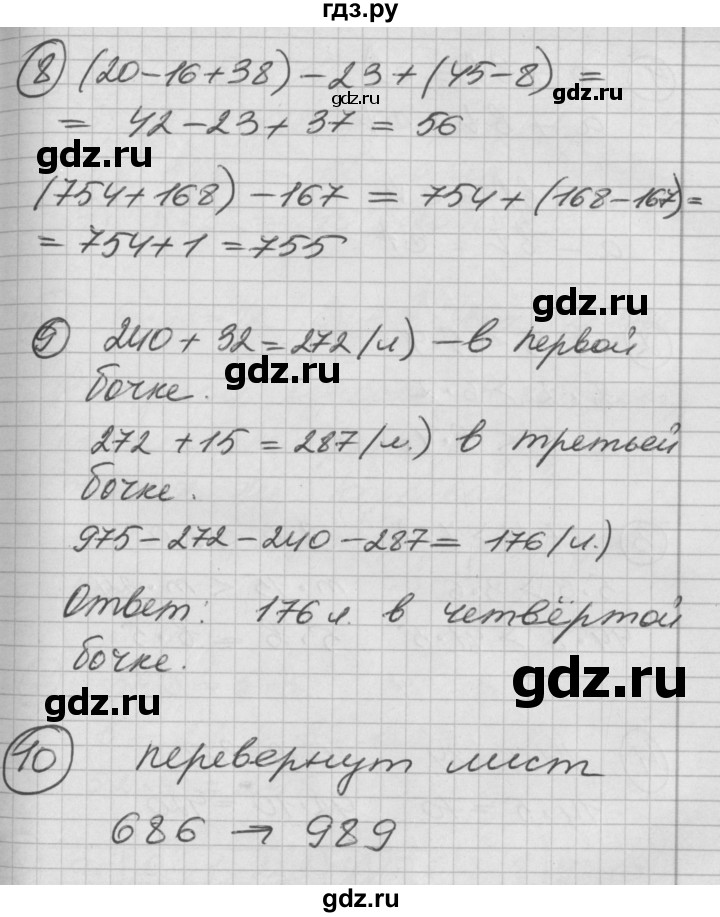 гдз.ру
8 (20-16+38)-23+(45-8) =
= 42-23+37 = 56
(754+168)-167 = 754+(168-167)=
= 754+1 = 755
9 240+32=272(л) - в первой
бочке.
272 +15 = 287(л.) в третьей
бочке.
975-272-240-287= 176(л.)
Ответ: 176 л. в четвёртой
бочке.
10 перевернут лист
686 → 989
gdz.ru
gdz.ru
gdz.ru
gdz.ru
gdz.ru
gdz.ru
gdz.ru
gdz.ru
gdz.ru